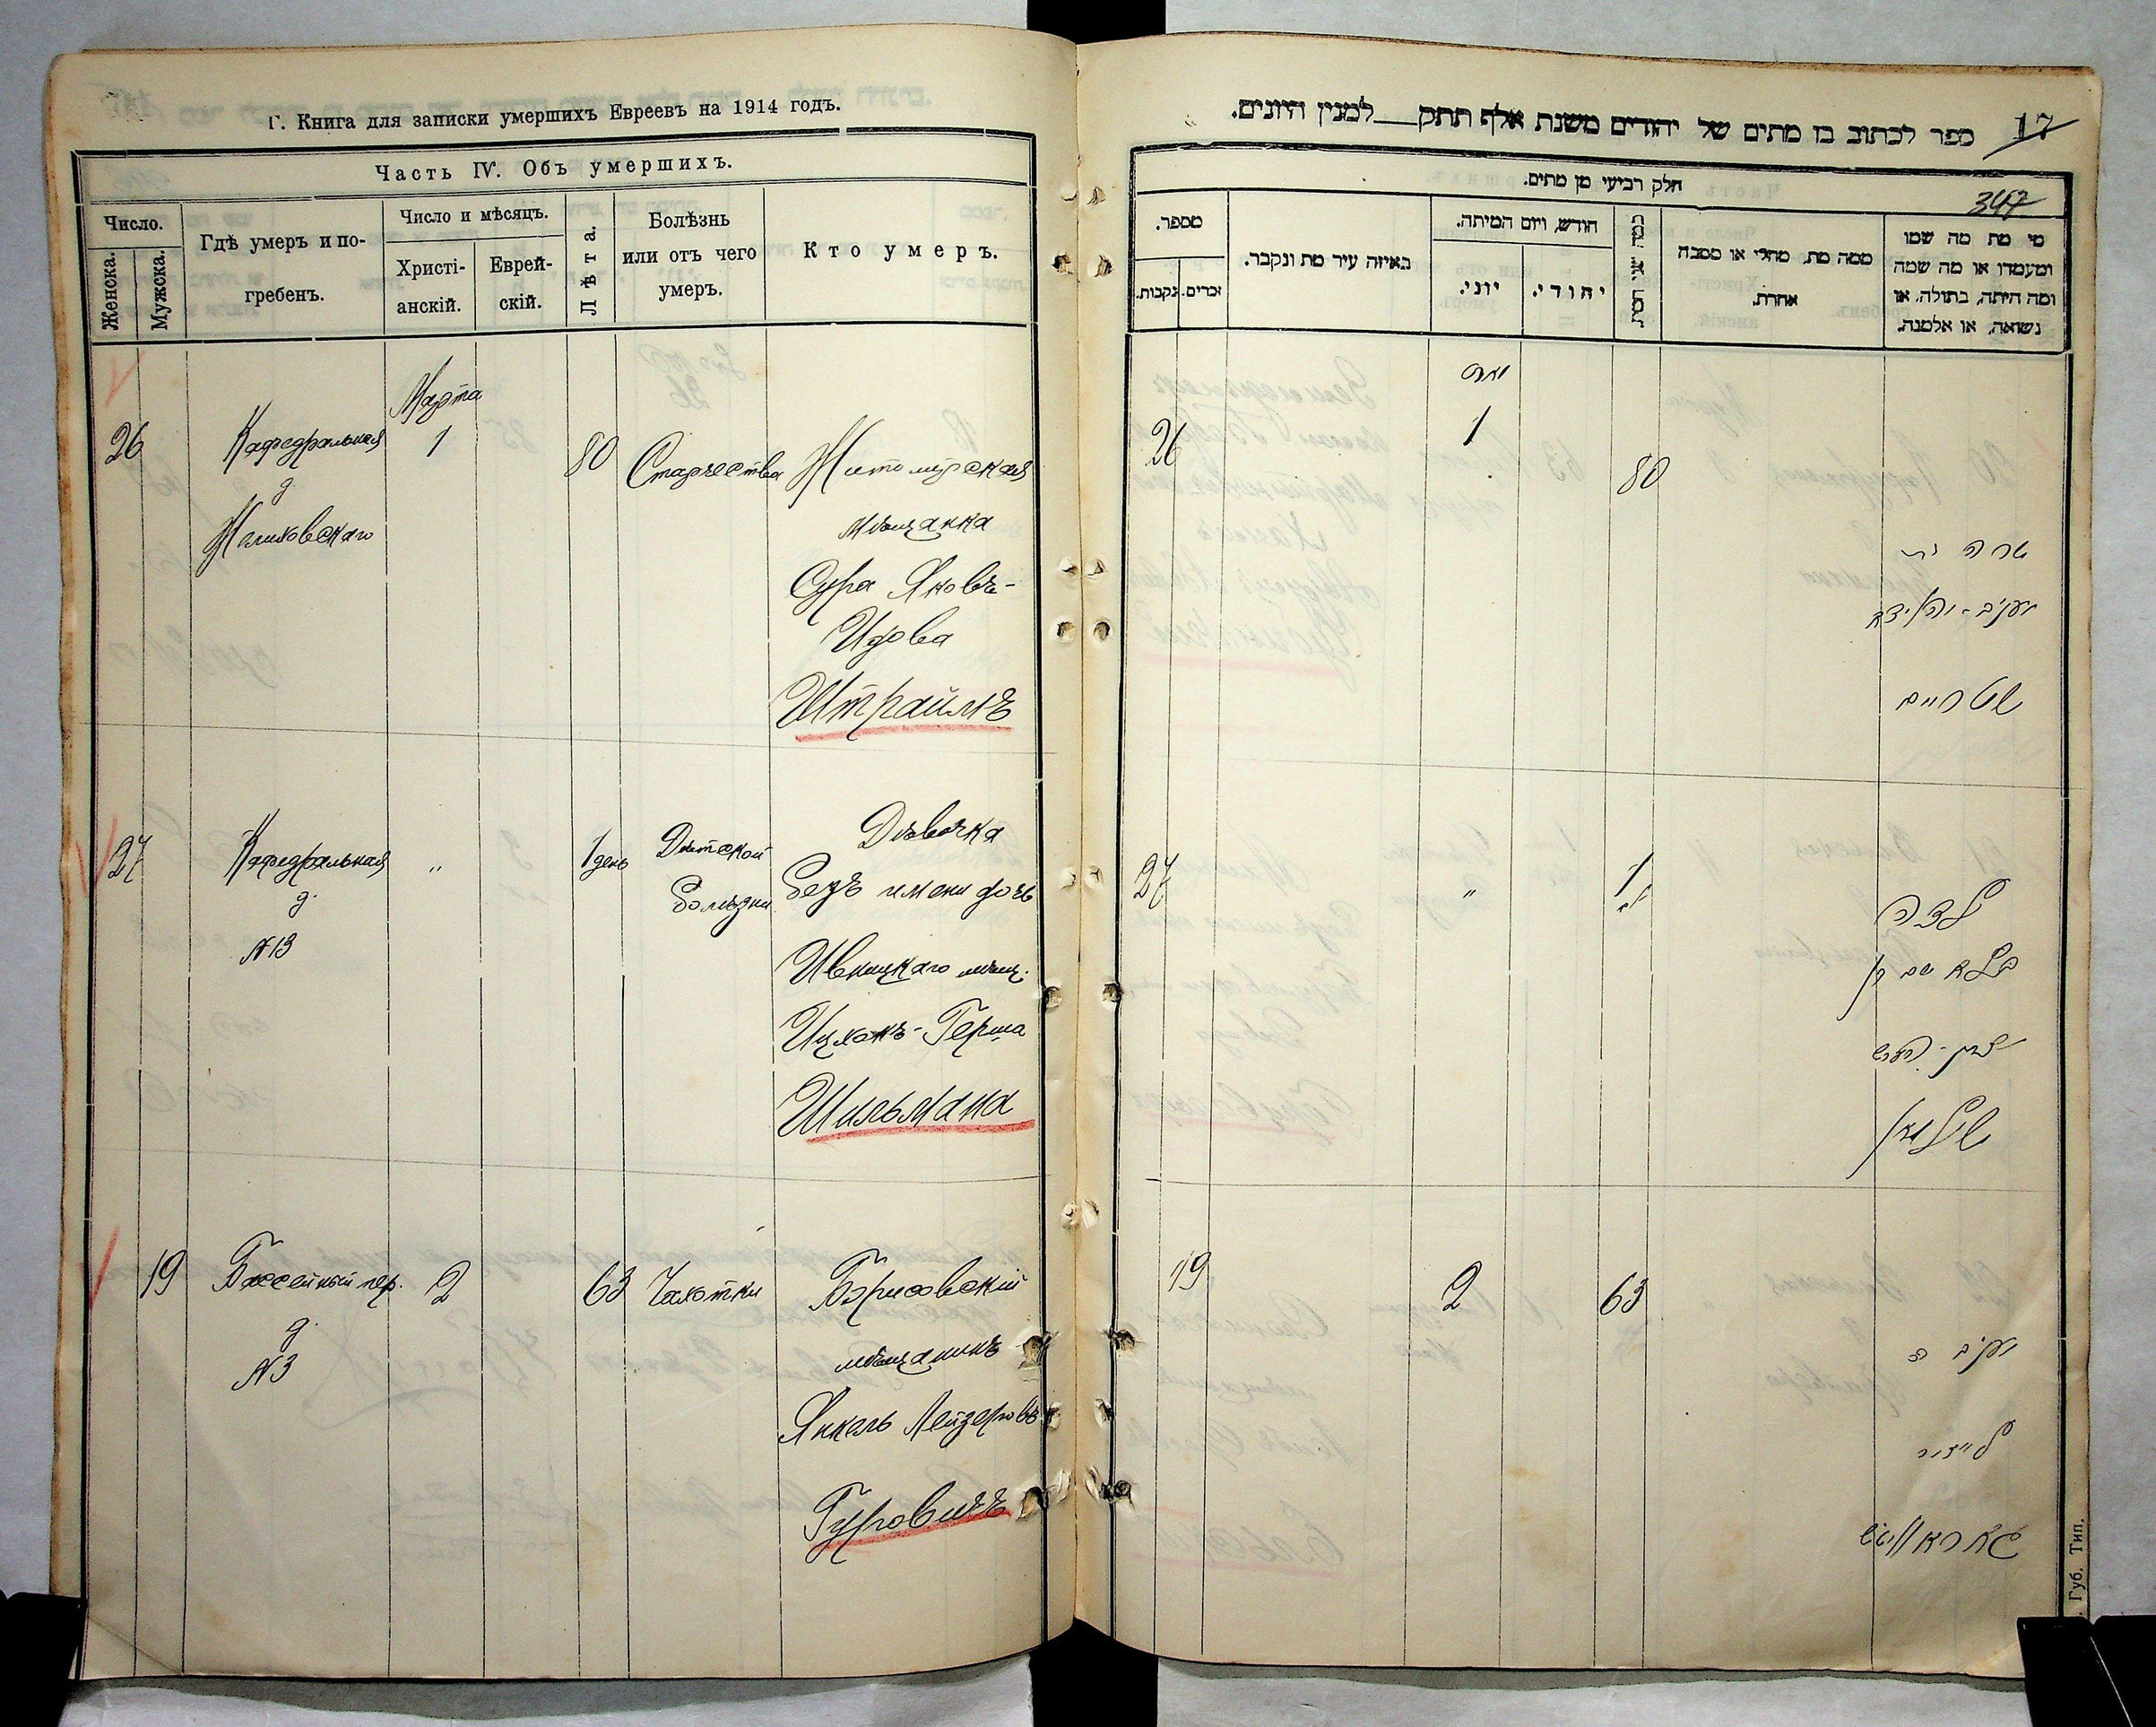 Г. Книга для записки умершихъ Евреевъ на 1914 годъ.
Часть IV. Объ умершихъ.
Число.
Женска.
Мужска.
Гдѣ умеръ и по-
гребенъ.
Число и мѣсяцъ.
Христі-
анскій.
Еврей-
скій.
Лѣта.
Болѣзнь
или отъ чего
умеръ.
Кто умеръ.
Марта
26 Кафедральная 1 80 Старчества Житомірская
д.
мѣщанка
Сура Яковъ-
Идова
Штраймъ
27 Кафедральная " 1 день Дѣтской Дѣвочка
д. болѣзни безъ имени дочь
№13 Ивницкаго мѣщ.
Ицхокъ-Герша
Шильмана
19 Бассейный пер. 2 63 Чахотки Борисовскій
д.
№3 мѣщанинъ
Янкель Лейзеровъ
Гуровичъ
ספר לכתוב בו מתים של יהודים משנת אלף תתק למנין היונים.
17
חלק רביעי מן מתים.
347
מספר.
זכרים.
נקבות.
באיזה עיר מת ונקבר.
חודש, ויום המיתה.
יוני.
יהודי.
ממה מת, מחלי או מסבה
אחרת.
מי מת מה שמו
ומעמדו או מה שמה
ומה היתה, בתולה, או
נשואה, או אלמנה.
מארט
26 1 80
שרה
שטריים
27 " 1
ילדה
בלא שם
יצחק-הערש
שילמאן
19 2 63
יעקב
לייזער
Губ. Тип.